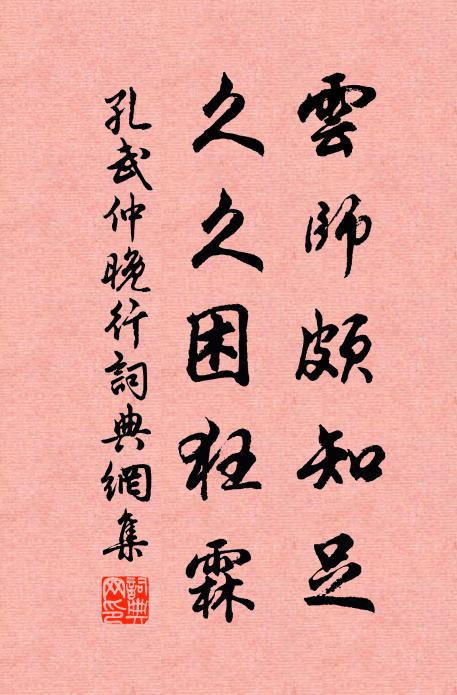 雲師頗知足
久久困狂霖
孔武仲晚行詞典網集
詞典網印